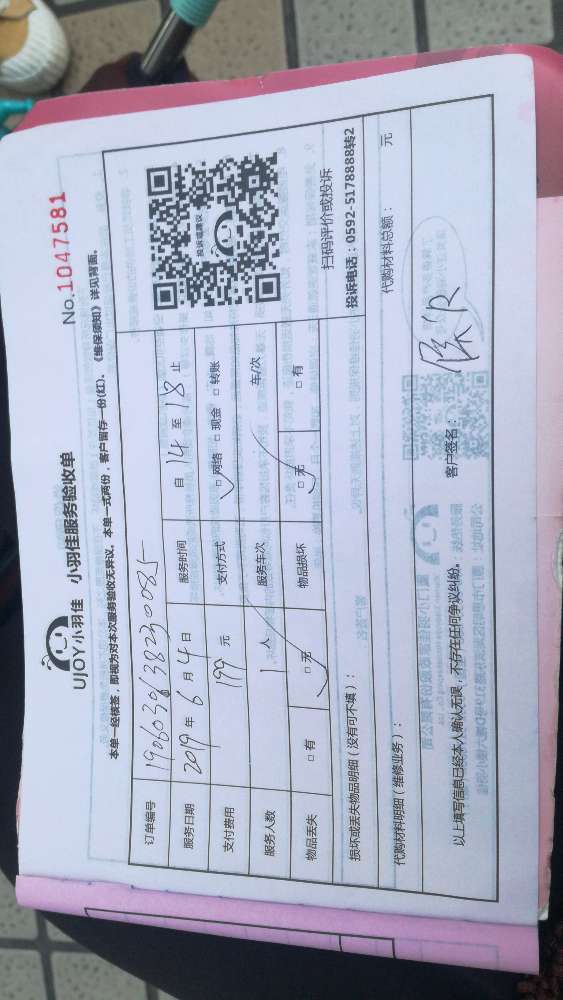 UJOY小羽佳 小羽佳服务验收单
No.1047581
本单一经核签，即视为对本次服务验收无异议，本单一式两份，客户留存一份(红)。《维保须知》详见背面。
订单编号 1906030638230085
服务日期 2019年6月4日 服务时间 自14至18止
支付费用 199元 支付方式 □网络 □现金 □转账
服务人数 1人 服务车次 车/次
物品丢失 □有 □无 物品损坏 □无 □有
投诉或建议
扫码评价或投诉
投诉电话：0592-5178888转2
损坏或丢失物品明细（没有可不填）：
代购材料明细（维修业务）： 代购材料总额： 元
以上填写信息已经本人确认无误，不存在任何争议纠纷。 客户签名：